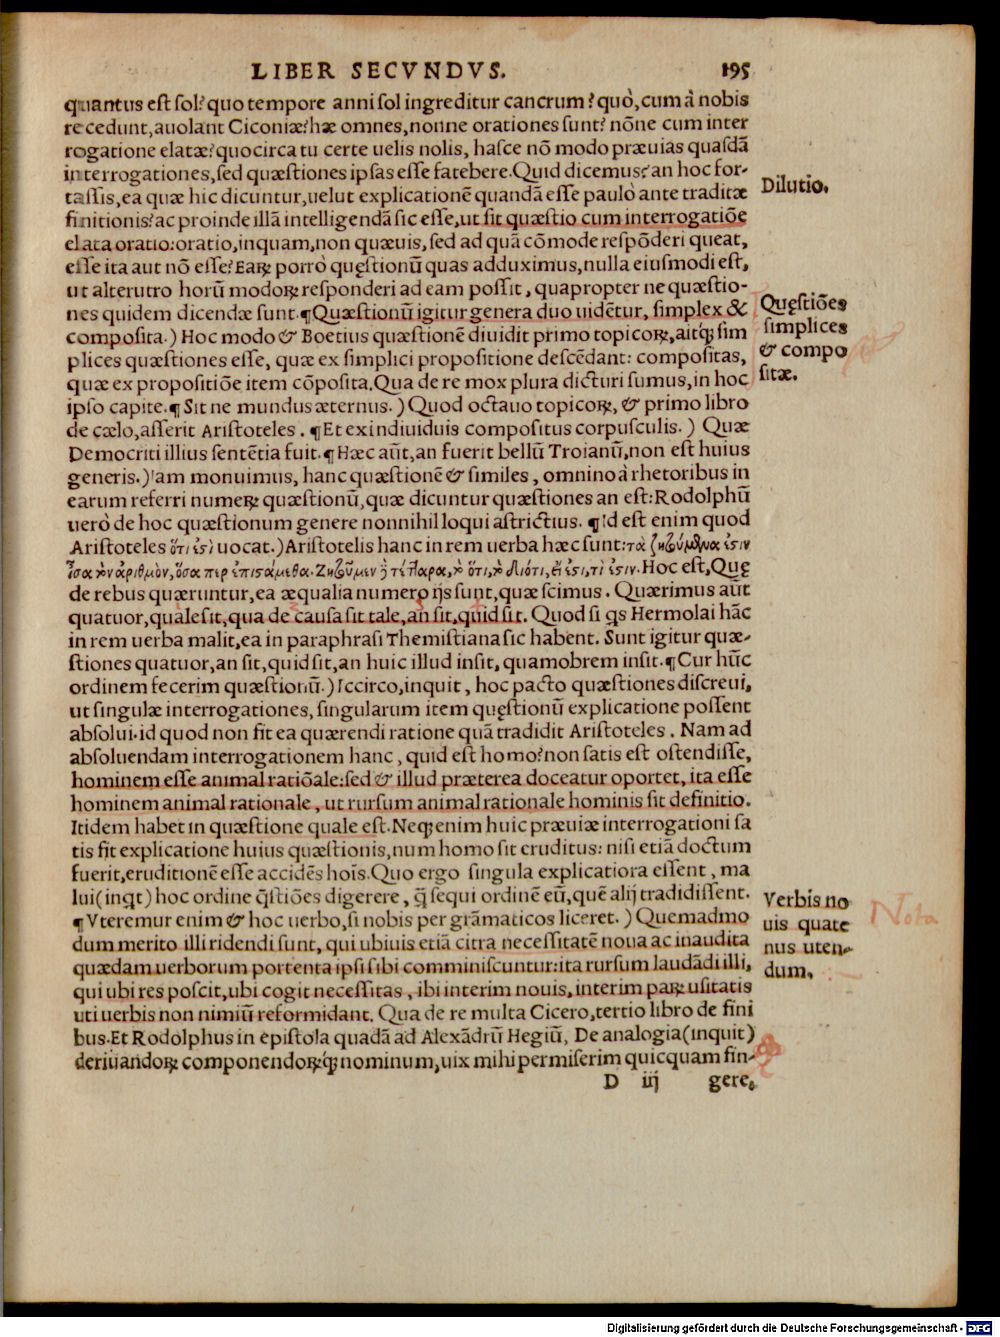 LIBER SECVNDVS. 195
quantus est sol? quo tempore anni sol ingreditur cancrum? quò, cum à nobis
recedunt, auolant Ciconiæ? hæ omnes, nonne orationes sunt? nõne cum inter
rogatione elatæ? quocirca tu certe uelis nolis, hasce nõ modo præuias quasdã
interrogationes, sed quæstiones ipsas esse fatebere. Quid dicemus? an hoc for-
tassis, ea quæ hic dicuntur, uelut explicationẽ quandã esse paulò ante traditæ
finitionis? ac proinde illã intelligendã sic esse, ut sit quæstio cum interrogatiõe
elata oratio: oratio, inquam, non quæuis, sed ad quã cõmode respõderi queat,
esse ita aut nõ esse? Earꝝ porrò quęstionũ quas adduximus, nulla eiusmodi est,
ut alterutro horũ modorꝝ responderi ad eam possit, quapropter ne quæstio-
nes quidem dicendæ sunt. ¶ Quæstionũ igitur genera duo uidẽtur, simplex &
composita.) Hoc modo & Boetius quæstionẽ diuidit primo topicorꝝ, aitq́ꝫ sim
plices quæstiones esse, quæ ex simplici propositione descẽdant: compositas,
quæ ex propositiõe item cõposita. Qua de re mox plura dicturi sumus, in hoc
ipso capite. ¶ Sit ne mundus æternus.) Quod octauo topicorꝝ, & primo libro
de cælo, asserit Aristoteles. ¶ Et ex indiuiduis compositus corpusculis.) Quæ
Democriti illius sentẽtia fuit. ¶ Hæc aũt, an fuerit bellũ Troianũ, non est huius
generis.) Iam monuimus, hanc quæstionẽ & similes, omnino à rhetoribus in
earum referri numerꝝ quæstionũ, quæ dicuntur quæstiones an est: Rodolphũ
uerò de hoc quæstionum genere nonnihil loqui astrictius. ¶ Id est enim quod
Aristoteles ὅτι ἐςὶ uocat.) Aristotelis hanc in rem uerba hæc sunt: τὰ ζητούμενα ἐςιν
ἴσα τὸν ἀριθμὸν, ὅσα περ ἐπιςάμεθα. Ζητοῦμεν δὲ τέτταρα, τὸ ὅτι, τὸ διότι, εἰ ἔςι, τί ἐςιν. Hoc est, Quę
de rebus quæruntur, ea æqualia numero ijs sunt, quæ scimus. Quærimus aũt
quatuor, quale sit, qua de causa sit tale, an sit, quid sit. Quod si qs Hermolai hãc
in rem uerba malit, ea in paraphrasi Themistiana sic habent. Sunt igitur quæ-
stiones quatuor, an sit, quid sit, an huic illud insit, quamobrem insit. ¶ Cur hũc
ordinem fecerim quæstionũ.) Iccirco, inquit, hoc pacto quæstiones discreui,
ut singulæ interrogationes, singularum item quęstionũ explicatione possent
absolui. id quod non fit ea quærendi ratione quã tradidit Aristoteles. Nam ad
absoluendam interrogationem hanc, quid est homo? non satis est ostendisse,
hominem esse animal ratiõale: sed & illud præterea doceatur oportet, ita esse
hominem animal rationale, ut rursum animal rationale hominis sit definitio.
Itidem habet in quæstione quale est. Neqꝫ enim huic præuiæ interrogationi sa
tis fit explicatione huius quæstionis, num homo sit eruditus: nisi etiã doctum
fuerit, eruditionẽ esse accidẽs hoĩs. Quo ergo singula explicatiora essent, ma
lui (inqt) hoc ordine q̃stiões digerere, q̃ sequi ordinẽ eũ, quẽ alij tradidissent.
¶ Vteremur enim & hoc uerbo, si nobis per grãmaticos liceret.) Quemadmo
dum merito illi ridendi sunt, qui ubiuis etiã citra necessitatẽ noua ac inaudita
quædam uerborum portenta ipsi sibi comminiscuntur: ita rursum laudãdi illi,
qui ubi res poscit, ubi cogit necessitas, ibi interim nouis, interim parꝝ usitatis
uti uerbis non nimiũ reformidant. Qua de re multa Cicero, tertio libro de fini
bus. Et Rodolphus in epistola quadã ad Alexãdrũ Hegiũ, De analogia (inquit)
deriuandorꝝ componendorꝝq́ꝫ nominum, uix mihi permiserim quicquam fin-
D iij gere,
Dilutio.
Quęstiões
simplices
& compo
sitæ.
Verbis no
uis quate
nus uten-
dum.
Nota
Digitalisierung gefördert durch die Deutsche Forschungsgemeinschaft - DFG